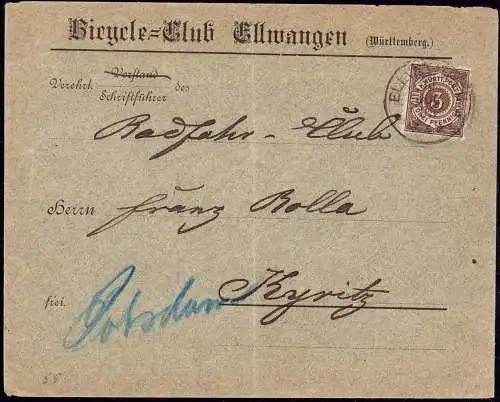 Bicycle=Club Ellwangen (Württemberg.)
Vorstand
Verehrl. des
Schriftführer
Radfahr-Club
Herrn Franz Bolla
frei. Kyritz
Potsdam
ELL
3
55